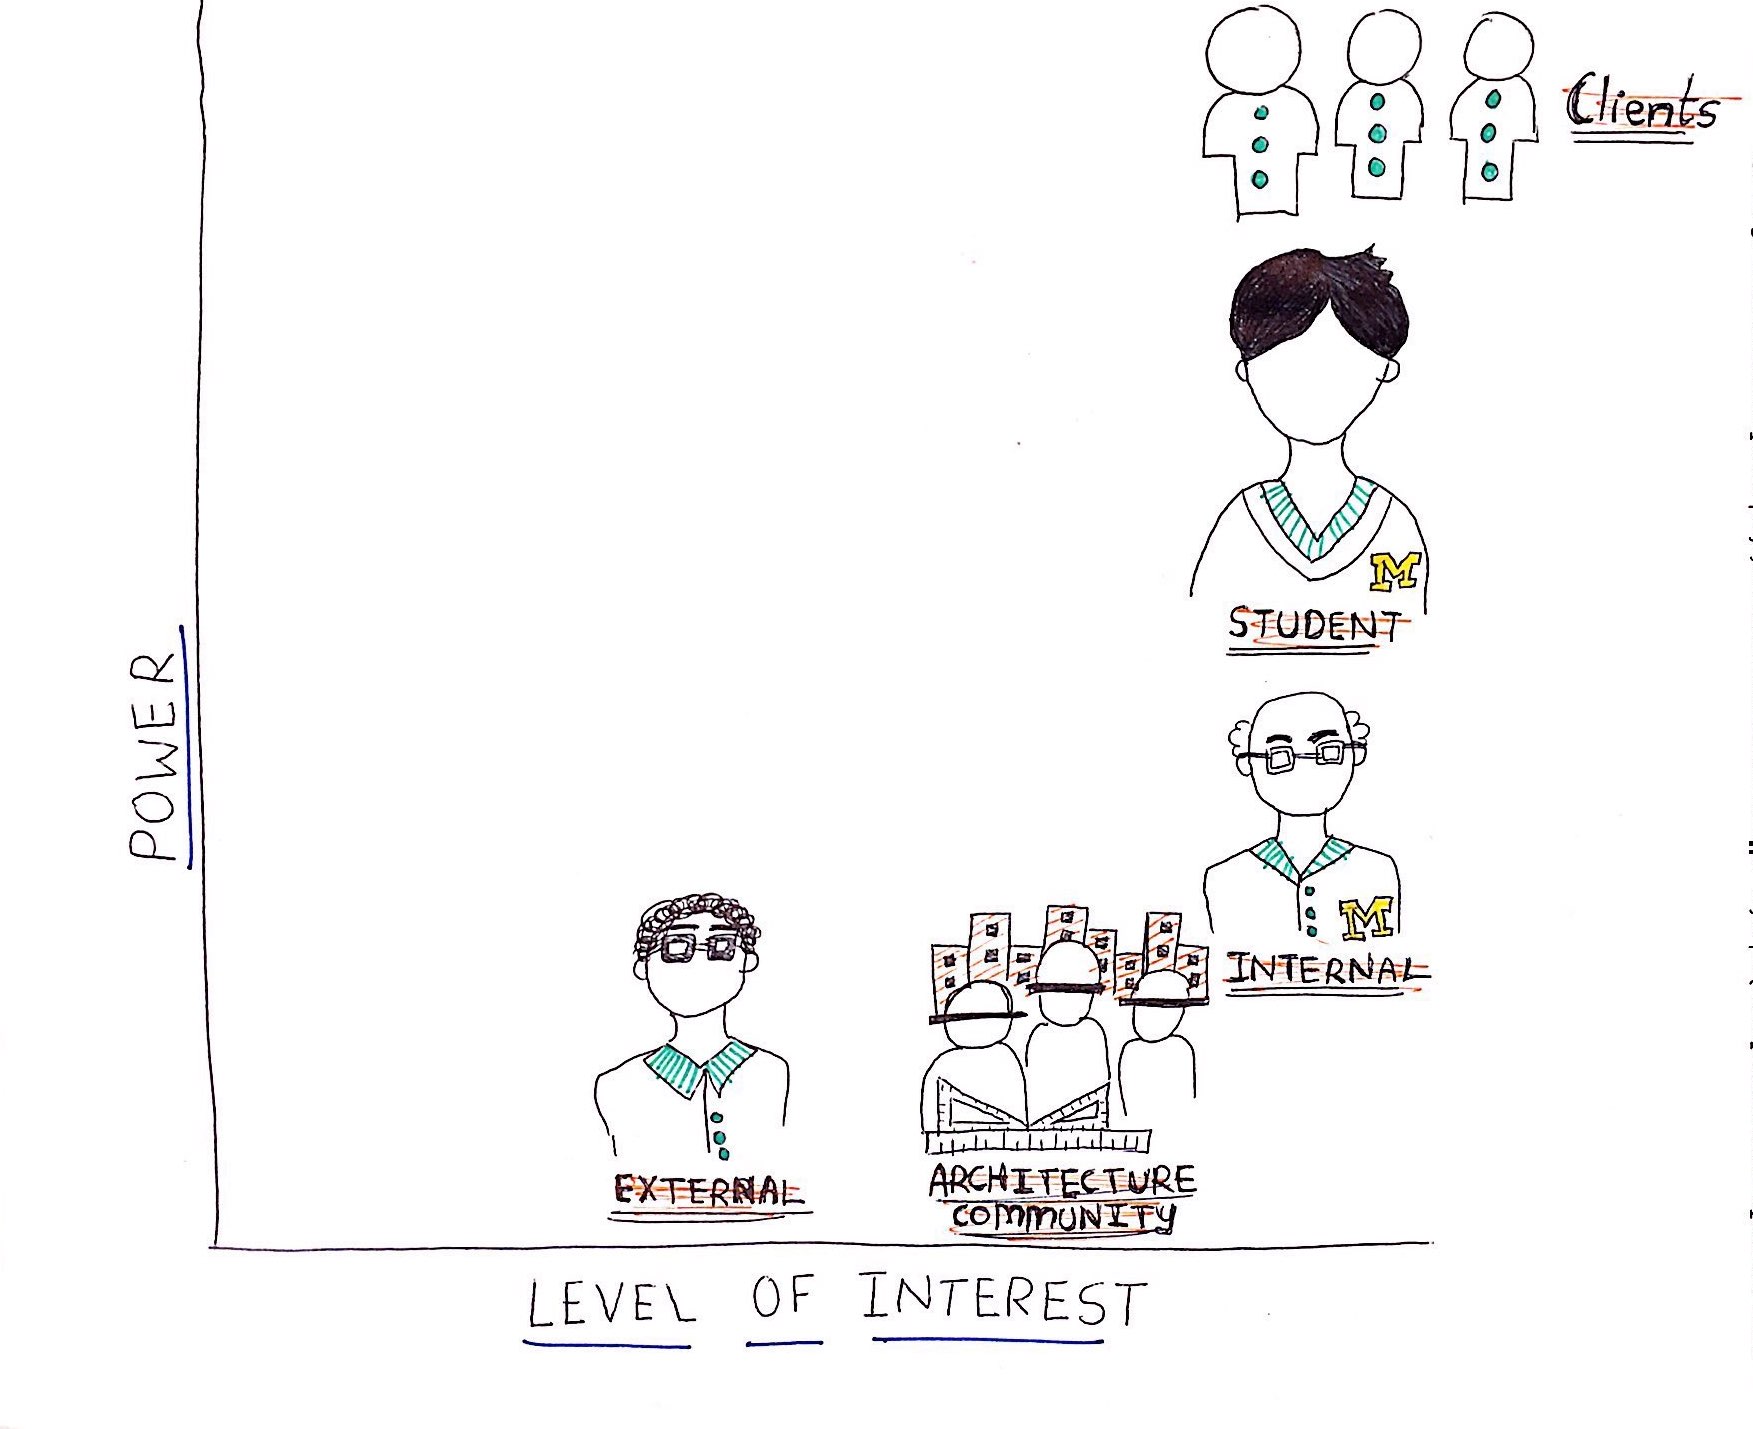 Clients
M
STUDENT
POWER
M
INTERNAL
EXTERNAL
ARCHITECTURE
COMMUNITY
LEVEL OF INTEREST